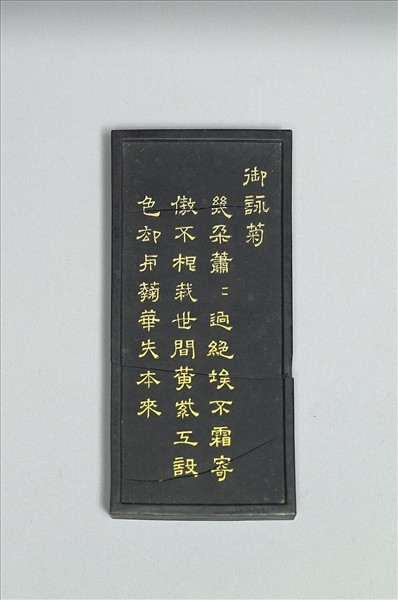 御詠菊
幾朵蕭〻逈絕埃不霜寄
傲不根栽世間黃紫工設
色却与蘜華失本來